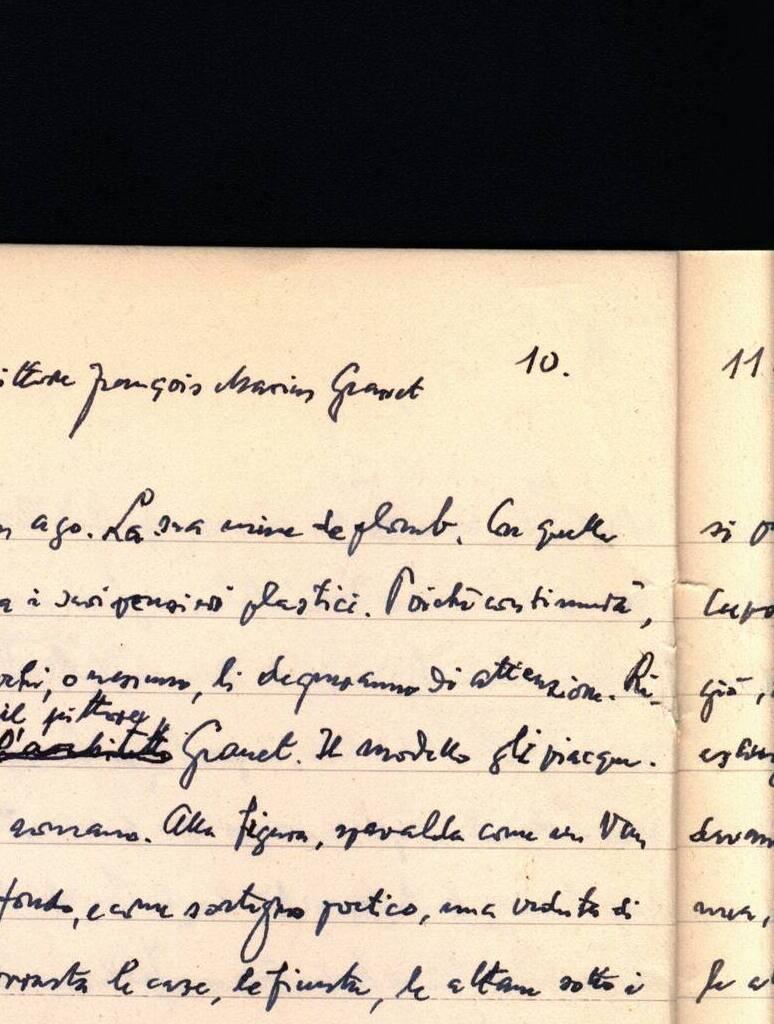 10.
11.
ittore François Marius Granet
ago. La sua mine de plomb. Con quella
a i suoi pensieri plastici. Poiché continuità,
ochi, o nessuno, li degneranno di attenzione. Ri-
il pittore
l'architetto Granet. Il modello gli piacque.
romano. Alla figura, spavalda come un Van
fondo, e come sostegno poetico, una veduta di
le case, le finestre, le altane sotto i
si
già,